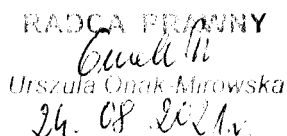 RADCA PRAWNY
Urszula Onak-Mirowska
24. 08 2021r.